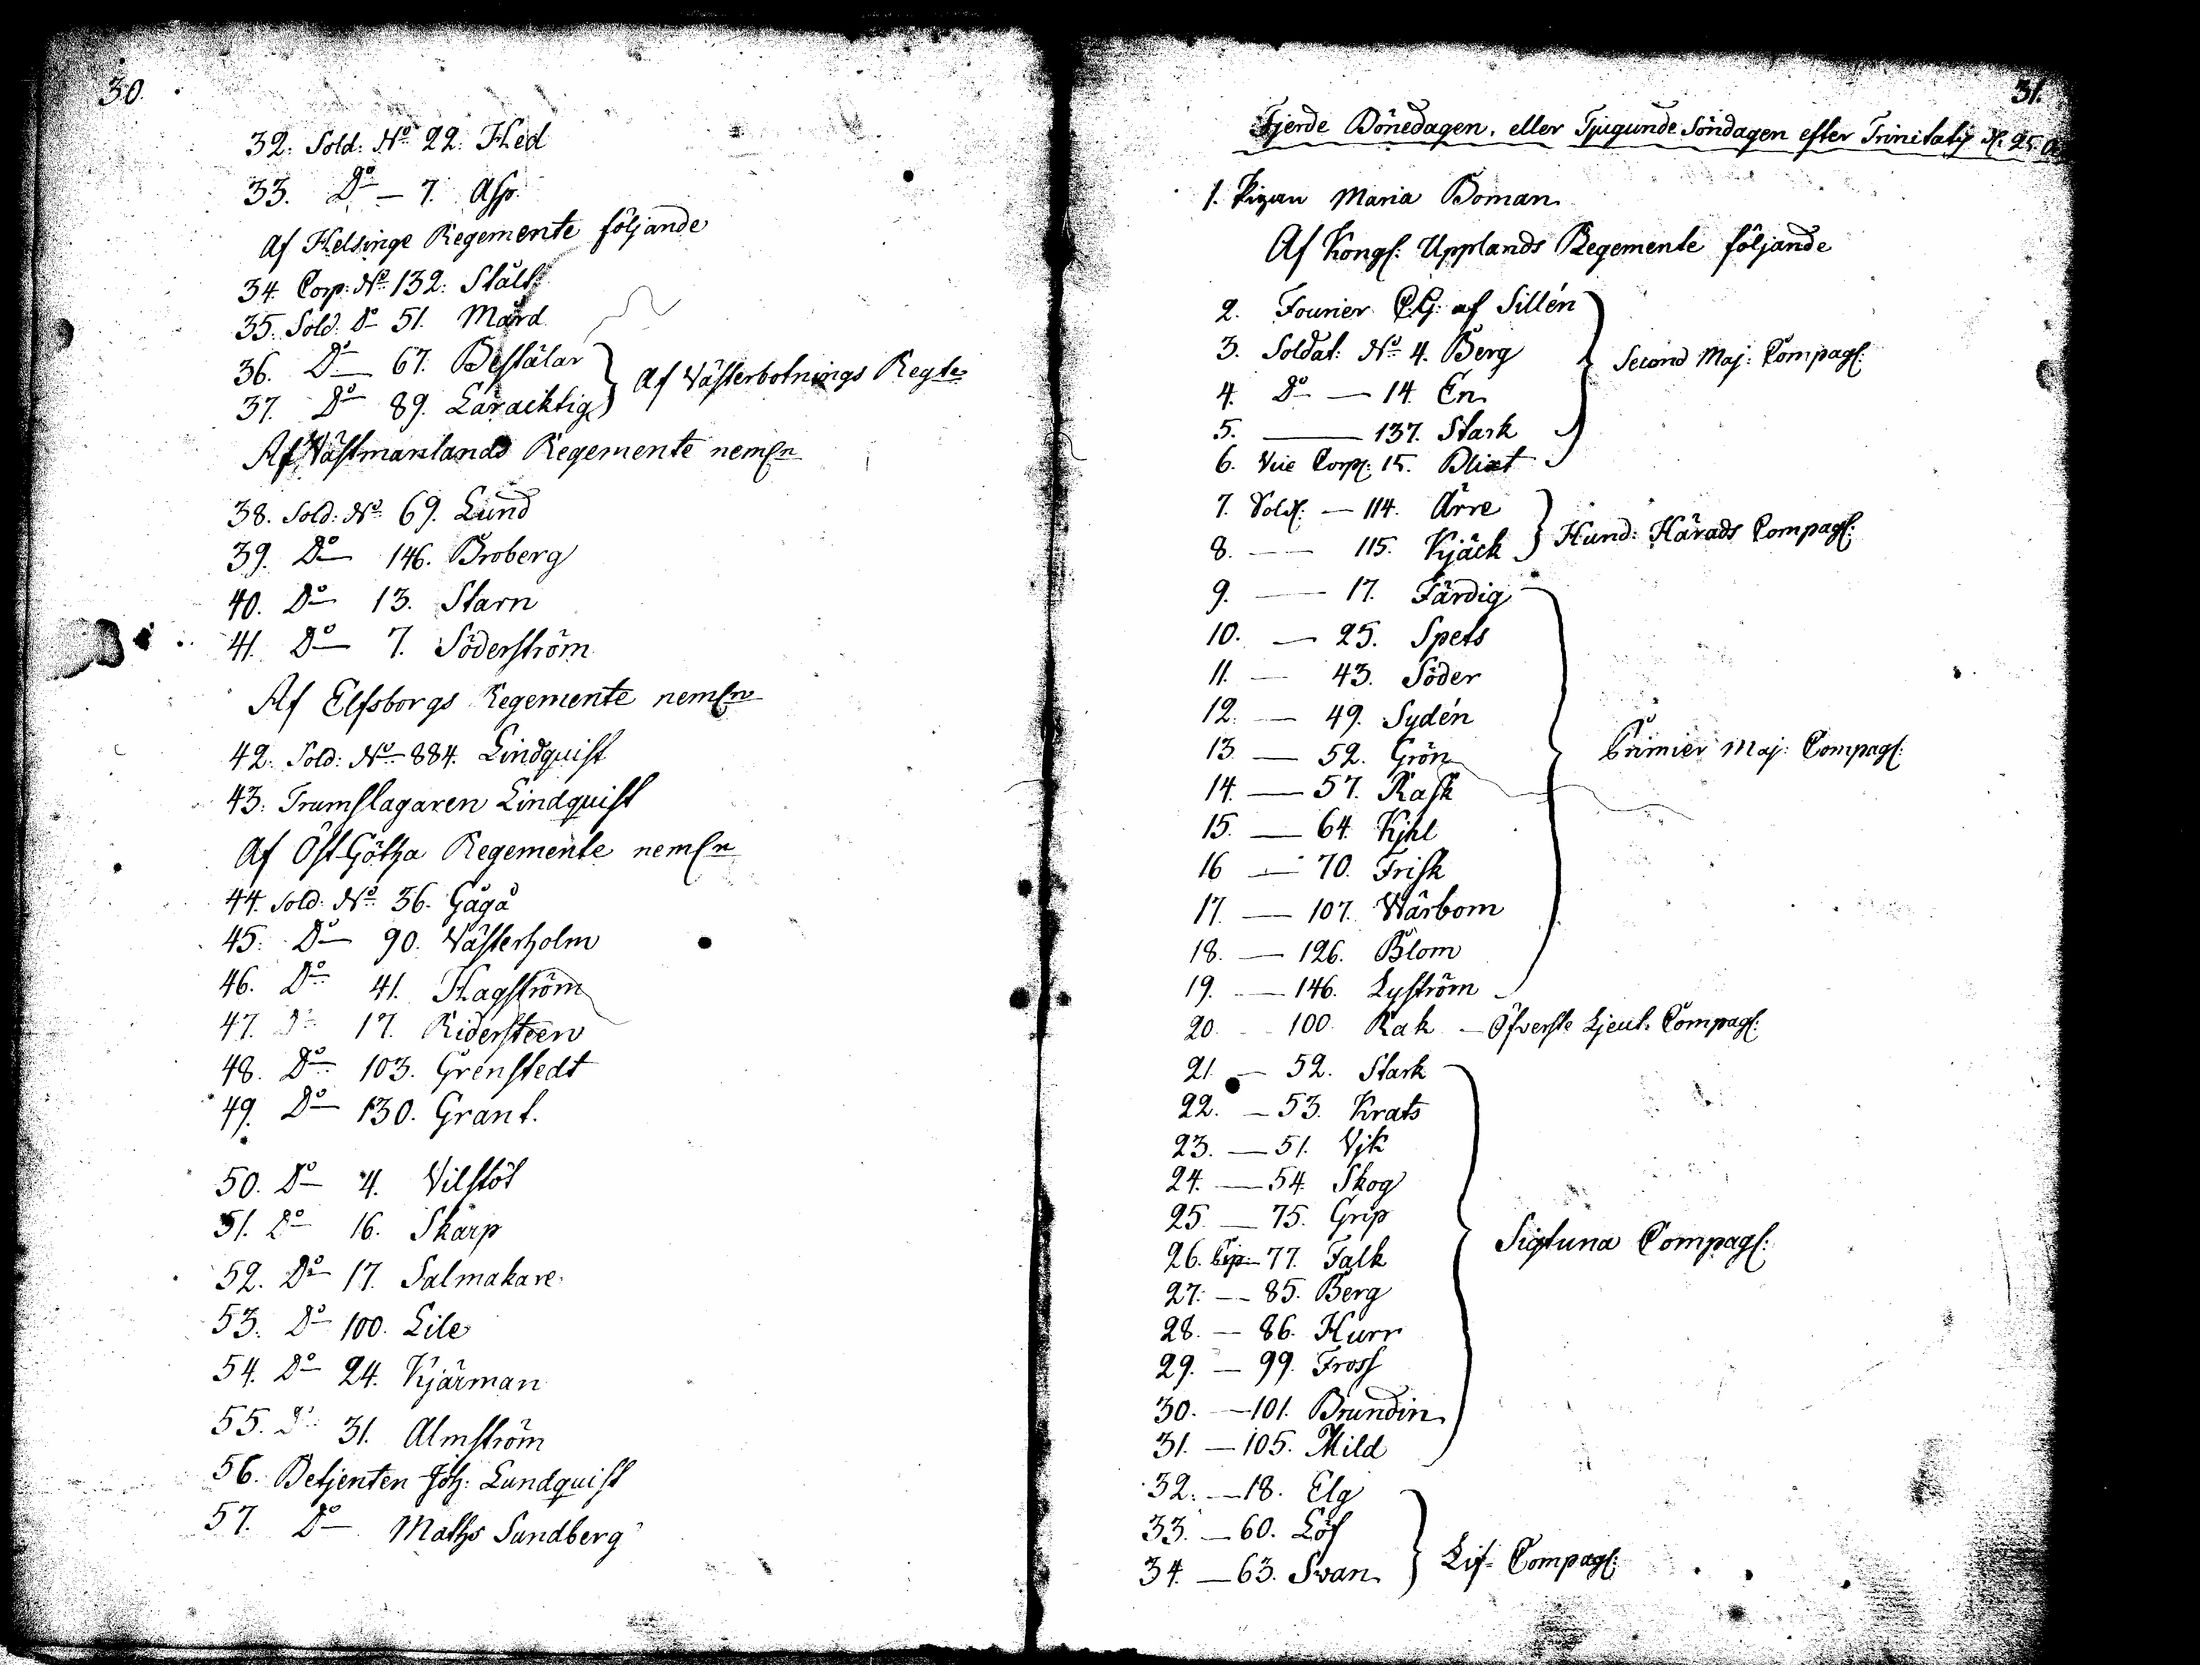 30.
32. Sold: No 22. Hed
33. Do — 7. Asp.
Af Helsinge Regemente följande
34. Corp: No 132. Stålt
35. Sold: Do 51. Mård
36. Do — 67. Bestälar
37. Do 89. Laracktig } Af Västerbotnings Regte
Af Västmanlands Regemente neml:n
38. Sold: No 69. Lund
39. Do — 146. Broberg
40. Do — 13. Starn
41. Do — 7. Söderström
Af Elfsborgs Regemente neml:n
42. Sold: No 884. Lindquist
43. Trumslagaren Lindquist
Af Öst Götha Regemente neml:n
44. Sold: No 36. Gågå
45. Do — 90. Västerholm
46. Do 41. Hagström
47. Do 17. Ridersteen
48. Do 103. Grenstedt
49. Do — 130. Grant.
50. Do — 4. Vilstöt
51. Do 16. Skarp
52. Do 17. Salmakare
53. Do 100. Lile
54. Do 24. Kjärman
55. Do 31. Almström
56. Betjenten Joh: Lundquist
57. Do — Maths Sundberg
31.
Fjerde Bönedagen, eller Tjugunde Söndagen efter Trinitatis d. 25
1. Pigan Maria Boman
Af Kongl: Upplands Regemente följande
2. Fourier C.G. af Sillén
3. Soldat: No 4. Berg
4. Do — 14. En } Second Maj: Compagl:
5. — 137. Stark
6. Vice Corpl: 15. Blixt
7. Sold: — 114. Ärre
8. — 115. Kjäck } Hund: Härads Compagl:
9. — 17. Färdig
10. — 25. Spets
11. — 43. Söder
12. — 49. Sydén
13. — 52. Grön } Primier Maj: Compagl:
14. — 57. Rask
15. — 64. Kjhl
16 — 70. Frisk
17. — 107. Wårbom
18. — 126. Blom
19. — 146. Lyström
20. — 100. Rak — Öfverste Ljeut: Compagl:
21. — 52. Stark
22. — 53. Krats
23. — 51. Vjk
24. — 54. Skog
25. — 75. Grip
26. Corp: 77. Falk } Sigtuna Compagl:
27. — 85. Berg
28. — 86. Hurr
29. — 99. Fross
30. — 101. Brundin
31. — 105. Mild
32. — 18. Elg
33. — 60. Löf
34. — 63. Svan } Lif- Compagl: